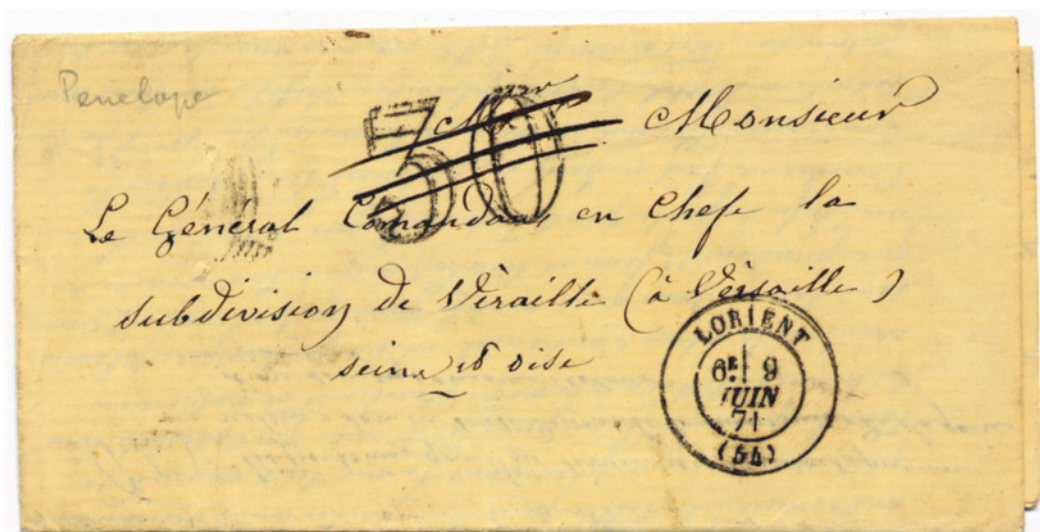 Penelope
30
Monsieur
Le Général Comandant en Chefe la
subdivision de Véraille (à Vérsaille)
seine et oise
LORIENT
6E 9
JUIN
71
(54)